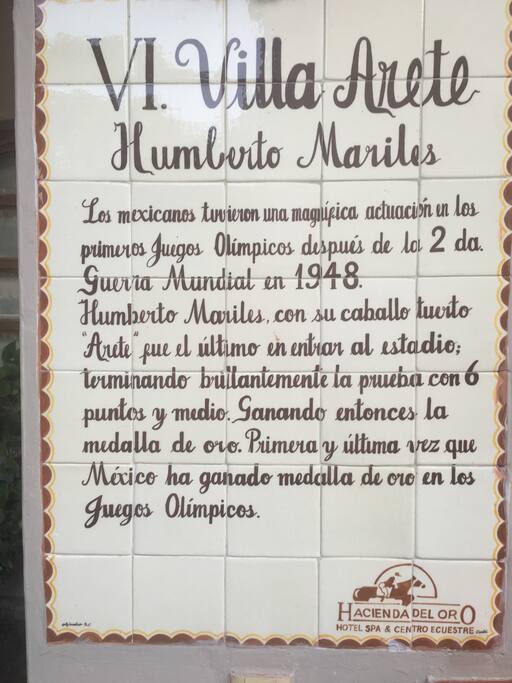 VI. Villa Arete
Humberto Mariles
Los mexicanos tuvieron una magnífica actuación en los
primeros Juegos Olímpicos después de la 2 da.
Guerra Mundial en 1948.
Humberto Mariles, con su caballo tuerto
"Arete" fue el último en entrar al estadio;
terminando brillantemente la prueba con 6
puntos y medio. Ganando entonces la
medalla de oro. Primera y última vez que
México ha ganado medalla de oro en los
Juegos Olímpicos.
HACIENDA DEL ORO
HOTEL SPA & CENTRO ECUESTRE